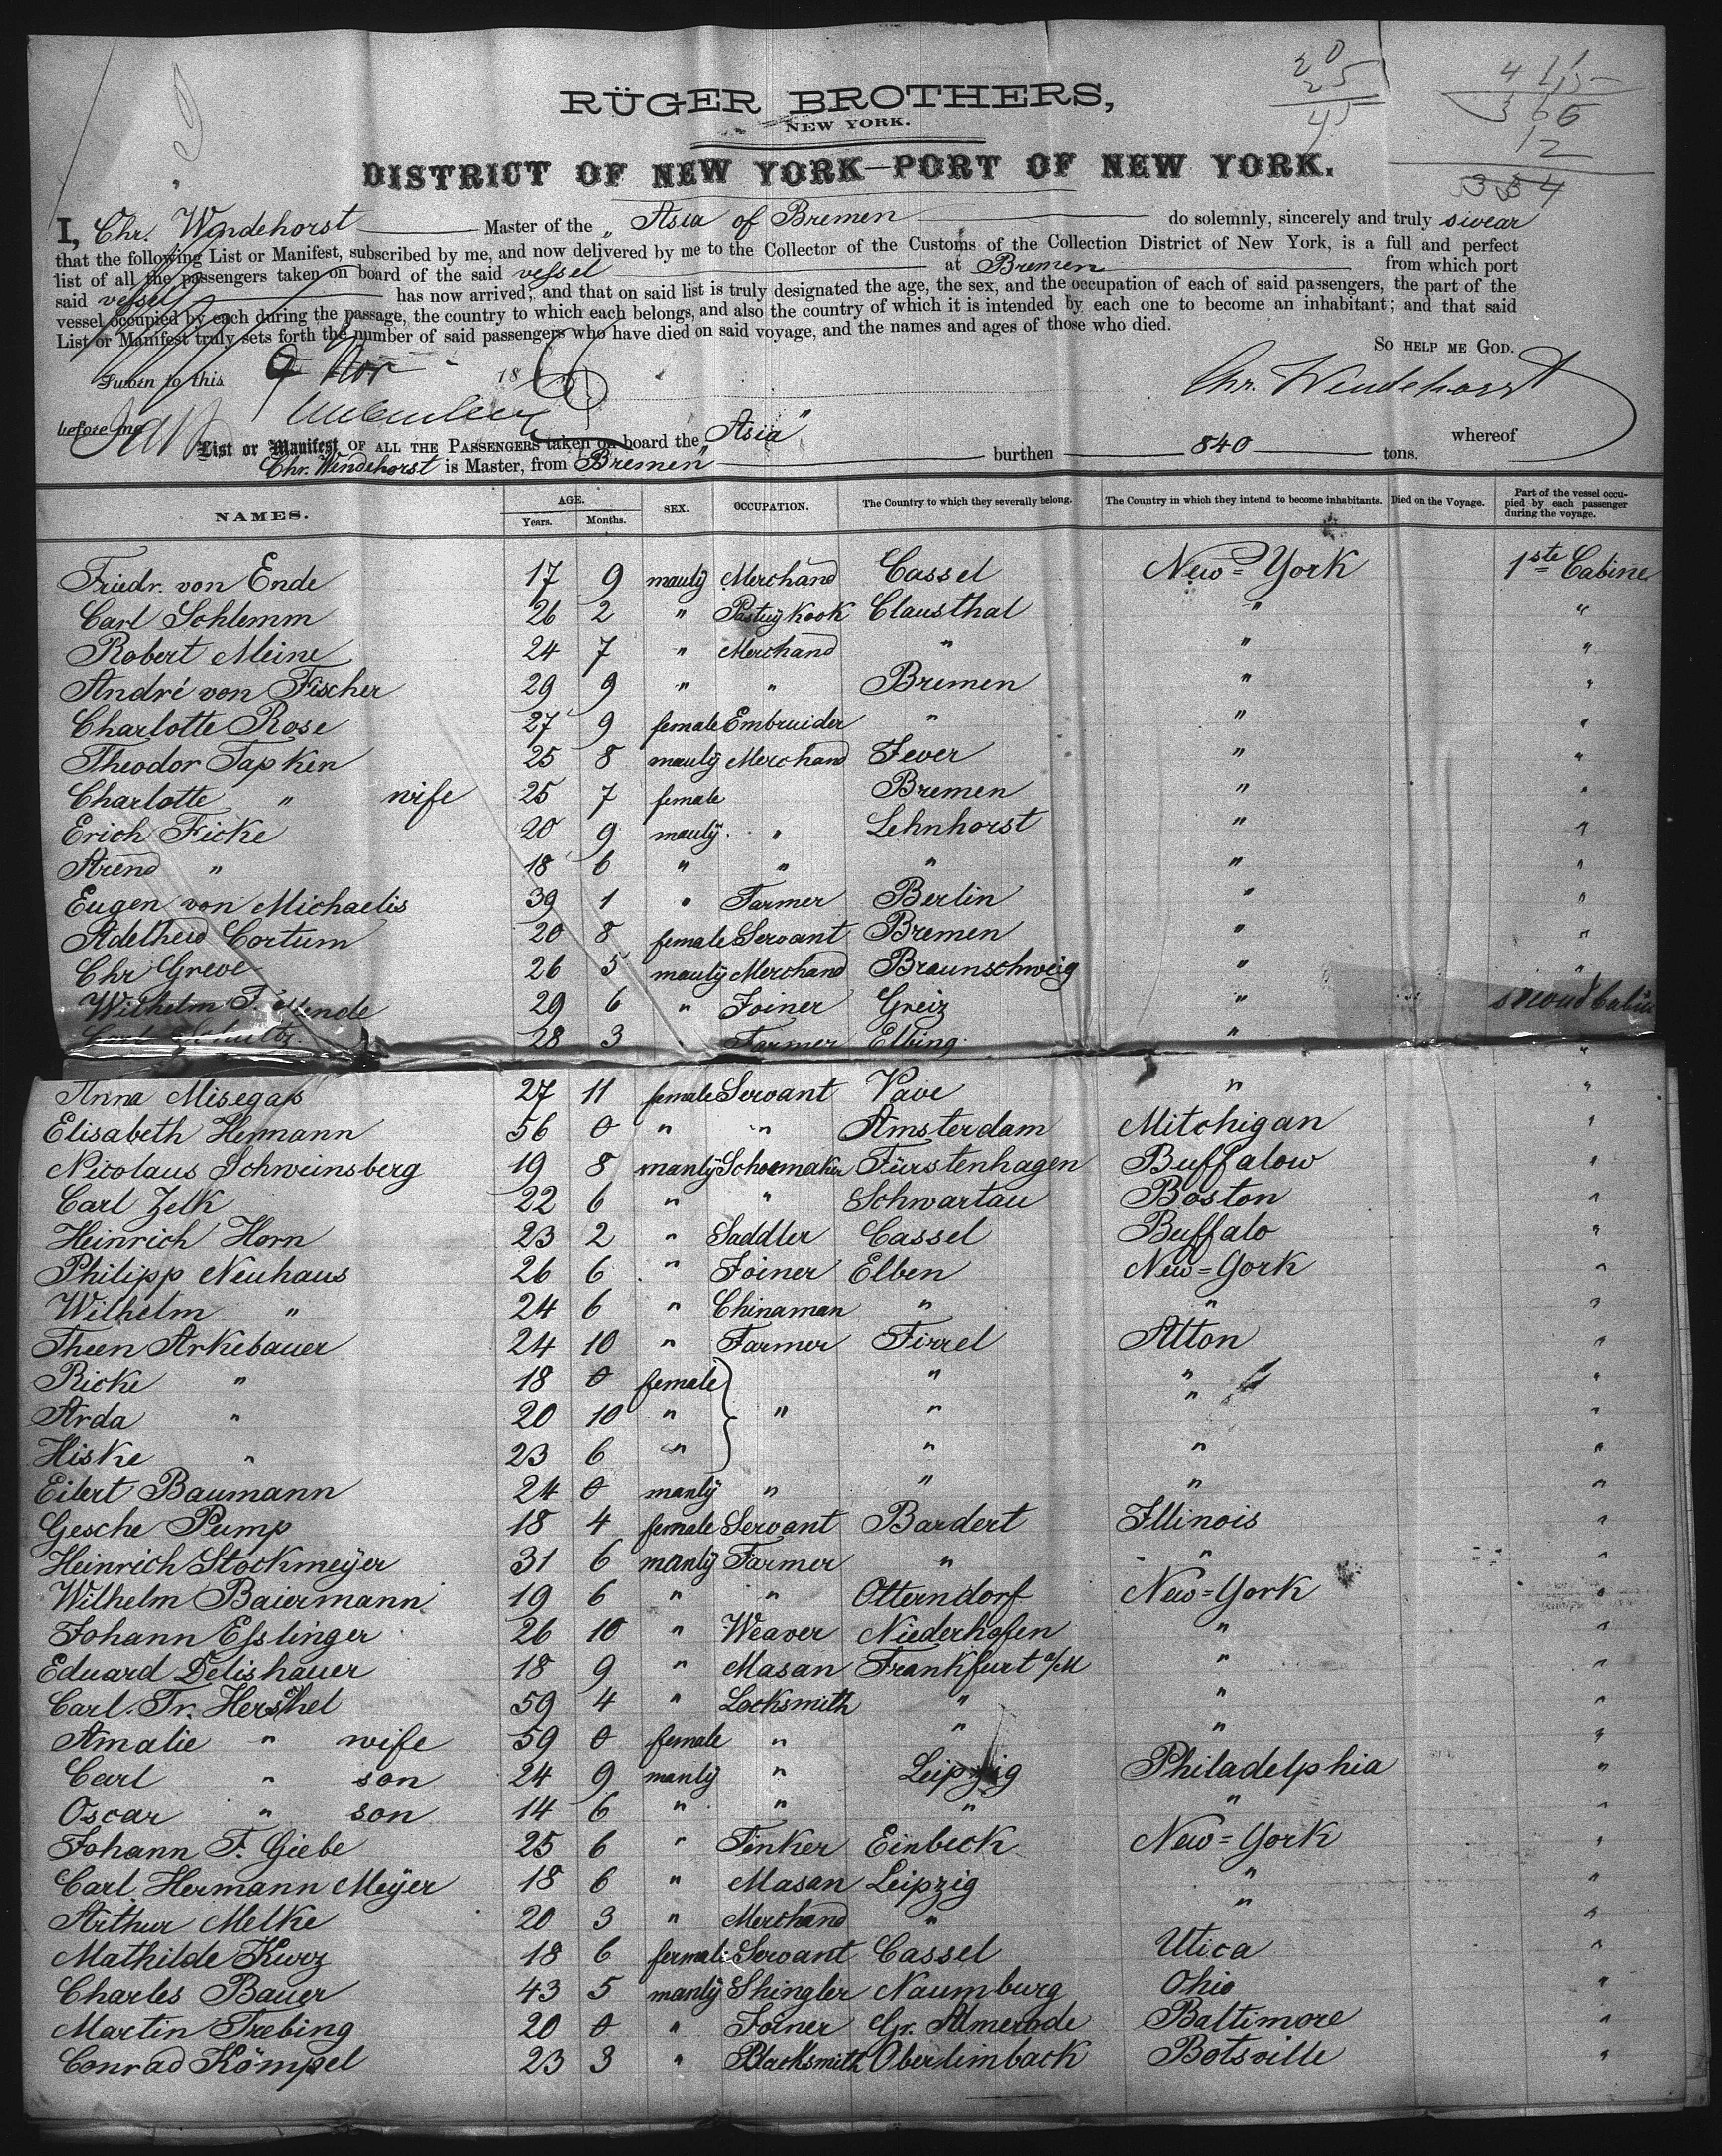 20
25
45
411
15
366
12
354
RÜGER BROTHERS,
NEW YORK.
DISTRICT OF NEW YORK—PORT OF NEW YORK.
I, Chr. Wendehorst Master of the „ Asia of Bremen do solemnly, sincerely and truly swear
that the following List or Manifest, subscribed by me, and now delivered by me to the Collector of the Customs of the Collection District of New York, is a full and perfect
list of all the passengers taken on board of the said vessel at Bremen from which port
said vessel has now arrived; and that on said list is truly designated the age, the sex, and the occupation of each of said passengers, the part of the
vessel occupied by each during the passage, the country to which each belongs, and also the country of which it is intended by each one to become an inhabitant; and that said
List or Manifest truly sets forth the number of said passengers who have died on said voyage, and the names and ages of those who died.
SO HELP ME GOD.
Sworn to this 9 Nov 186
Chr. Wendehorst
before me
List or Manifest OF ALL THE PASSENGERS taken on board the „Asia" whereof
Chr. Wendehorst is Master, from Bremen burthen 840 tons.
NAMES. AGE. Years. Months. SEX. OCCUPATION. The Country to which they severally belong. The Country in which they intend to become inhabitants. Died on the Voyage. Part of the vessel occupied by each passenger during the voyage.
Friedr. von Ende 17 9 manly Merchand Cassel New=York 1ste Cabine
Carl Schlemm 26 2 " Pastuy Kook Clausthal " "
Robert Meine 24 7 " Merchand " " "
André von Fischer 29 9 " " Bremen " "
Charlotte Rose 27 9 female Embruider " " "
Theodor Tapken 25 8 manly Merchand Jever " "
Charlotte " wife 25 7 female Bremen " "
Erich Ficke 20 9 manly " Lehnhorst " "
Arend " 18 6 " " " " "
Eugen von Michaelis 39 1 " Farmer Berlin " "
Adelheid Cortum 20 8 female Servant Bremen " "
Chr Greve 26 5 manly Merchand Braunschweig " "
Wilhelm F. 29 6 " Joiner Greiz " second Cabin
Carl Schultz. 28 3 Farmer Elbing " "
Anna Misegaſs 27 11 female Servant Vave " "
Elisabeth Hermann 56 0 " " Amsterdam Mitchigan "
Nicolaus Schweinsberg 19 8 manly Schoemaker Fürstenhagen Buffalow "
Carl Zelk 22 6 " " Schwartau Boston "
Heinrich Horn 23 2 " Saddler Cassel Buffalo "
Philipp Neuhaus 26 6 " Joiner Elben New=York "
Wilhelm " 24 6 " Chinaman " " "
Theen Arkebauer 24 10 " Farmer Firrel Alton "
Ricke " 18 0 female " " "
Arda " 20 10 " " " " "
Hiske " 23 6 " " " "
Eilert Baumann 24 0 manly " " " "
Gesche Pump 18 4 female Servant Bardert Illinois "
Heinrich Stockmeÿer 31 6 manly Farmer " " "
Wilhelm Baiermann 19 6 " " Otterndorf New=York "
Johann Eſslinger 26 10 " Weaver Niederhofen " "
Eduard Delishauer 18 9 " Masan Frankfurt a/M " "
Carl. Fr. Hershel 59 4 " Locksmith " " "
Amalie " wife 59 0 female " " " "
Carl " son 24 9 manly " Leipzig Philadelphia "
Oscar " son 14 6 " " " " "
Johann F. Giebe 25 6 " Tinker Einbeck New=York "
Carl Hermann Meÿer 18 6 " Masan Leipzig " "
Arthur Melke 20 3 " Merchand " " "
Mathilde Kurz 18 6 female Servant Cassel Utica "
Charles Bauer 43 5 manly Shingler Naumburg Ohio "
Martin Trebing 20 0 " Joiner Gr. Almerode Baltimore "
Conrad Kömpel 23 3 " Blacksmith Oberlimback Botsville "